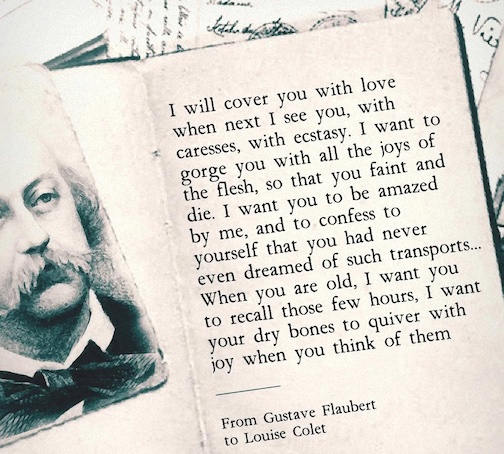 I will cover you with love
when next I see you, with
caresses, with ecstasy. I want to
gorge you with all the joys of
the flesh, so that you faint and
die. I want you to be amazed
by me, and to confess to
yourself that you had never
even dreamed of such transports...
When you are old, I want you
to recall those few hours, I want
your dry bones to quiver with
joy when you think of them
From Gustave Flaubert
to Louise Colet